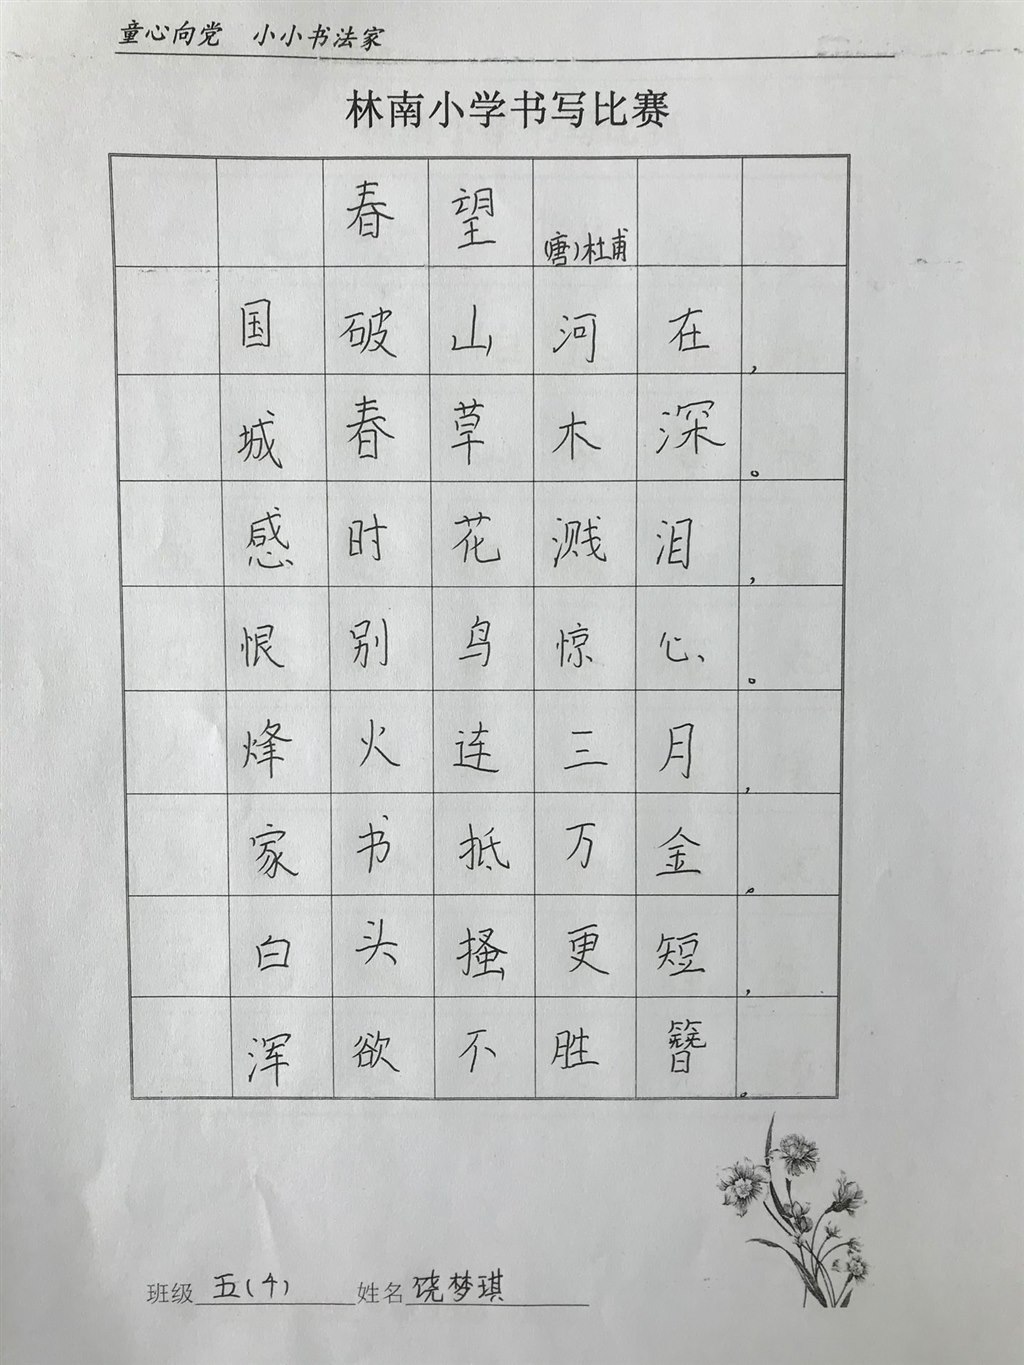 童心向党 小小书法家
林南小学书写比赛
春望 (唐)杜甫
国破山河在，
城春草木深。
感时花溅泪，
恨别鸟惊心。
烽火连三月，
家书抵万金。
白头搔更短，
浑欲不胜簪。
班级 五(4) 姓名 饶梦琪